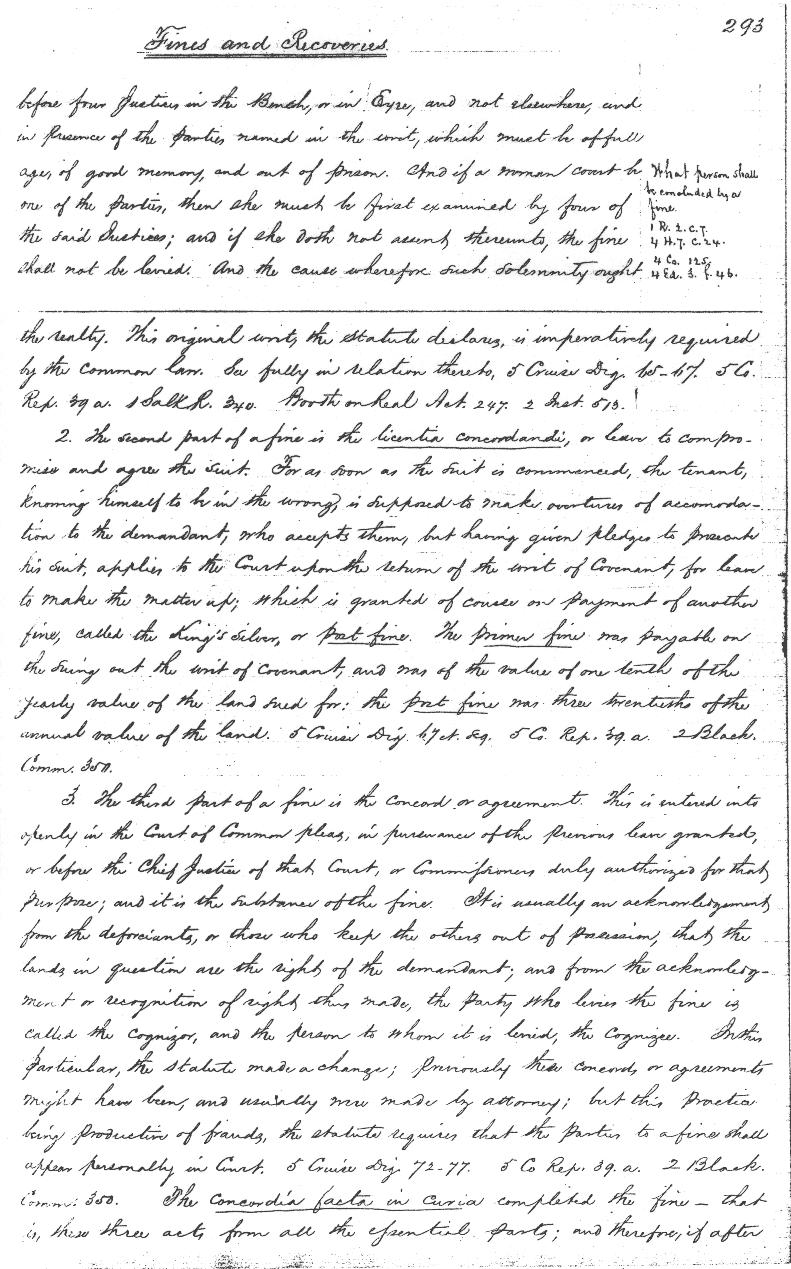 293
Fines and Recoveries.
before four Justices in the Bench, or in Eyre, and not elsewhere, and
in presence of the parties named in the writ, which must be of full
age, of good memory, and out of prison. And if a woman court be
one of the parties, then she must be first examined by four of
the said Justices; and if she doth not assent thereunto, the fine
shall not be levied. And the cause wherefore such solemnity ought
What person shall
be concluded by a
fine.
1 R. 2. C. 7.
4 H. 7. C. 24.
4 Co. 125.
4 Ed. 3. f. 46.
the realty. This original writ, the statute declares, is imperatively required
by the common law. See fully in relation thereto, 5 Cruise Dig. 65-67. 5 Co.
Rep. 39 a. 1 Salk R. 340. Booth on Real Act. 247. 2 Inst. 513.
2. The second part of a fine is the licentia concordandi, or leave to compro-
mise and agree the suit. For as soon as the suit is commenced, the tenant,
knowing himself to be in the wrong, is supposed to make overtures of accomoda-
tion to the demandant, who accepts them, but having given pledges to prosecute
his suit, applies to the Court upon the return of the writ of Covenant, for leave
to make the matter up; which is granted of course on payment of another
fine, called the King's silver, or post fine. The primer fine was payable on
the suing out the writ of covenant, and was of the value of one tenth of the
yearly value of the land sued for: the post fine was three twentieths of the
annual value of the land. 5 Cruise Dig. 67 et. sq. 5 Co. Rep. 39. a. 2 Black.
Comm. 350.
3. The third part of a fine is the concord or agreement. This is entered into
openly in the Court of Common pleas, in pursuance of the previous leave granted,
or before the Chief Justice of that Court, or Commissioners duly authorized for that
purpose; and it is the substance of the fine. It is usually an acknowledgement
from the deforciants, or those who keep the others out of possession, that the
lands in question are the right of the demandant; and from the acknowledg-
ment or recognition of right thus made, the party who levies the fine is
called the cognizor, and the person to whom it is levied, the cognizee. In this
particular, the statute made a change; previously these concords or agreements
might have been, and usually were made by attorney; but this practice
being productive of frauds, the statute requires that the parties to a fine shall
appear personally in Court. 5 Cruise Dig. 72-77. 5 Co Rep. 39. a. 2 Black.
Comm: 350. The concordia facta in curia completed the fine — that
is, these three acts form all the essential parts; and therefore, if after